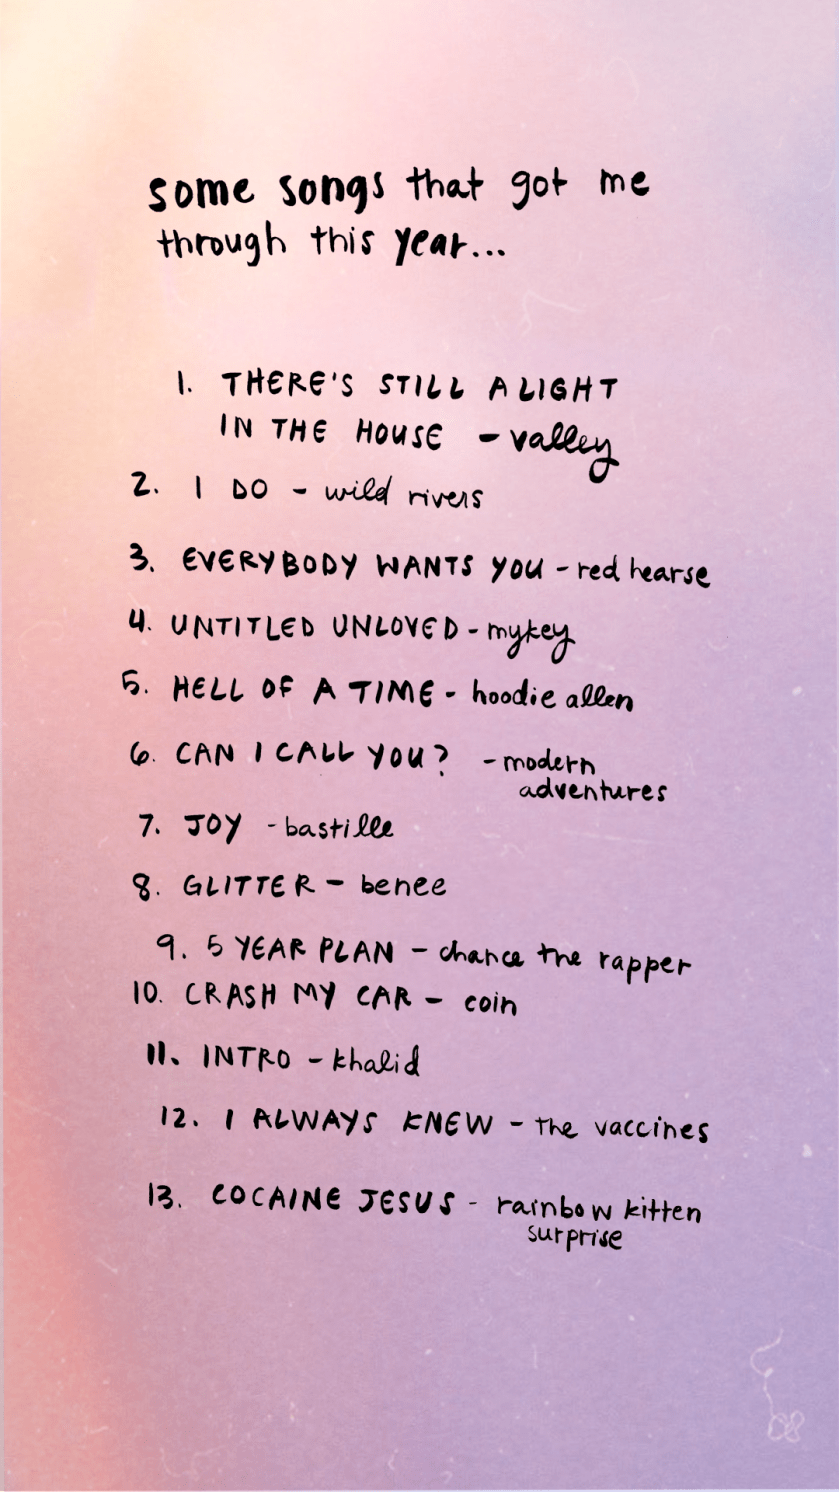 some songs that got me
through this year...
1. THERE'S STILL A LIGHT
IN THE HOUSE - valley
2. I DO - wild rivers
3. EVERYBODY WANTS YOU - red hearse
4. UNTITLED UNLOVED - mykey
5. HELL OF A TIME - hoodie allen
6. CAN I CALL YOU? - modern
adventures
7. JOY - bastille
8. GLITTER - benee
9. 5 YEAR PLAN - chance the rapper
10. CRASH MY CAR - coin
11. INTRO - khalid
12. I ALWAYS KNEW - the vaccines
13. COCAINE JESUS - rainbow kitten
surprise